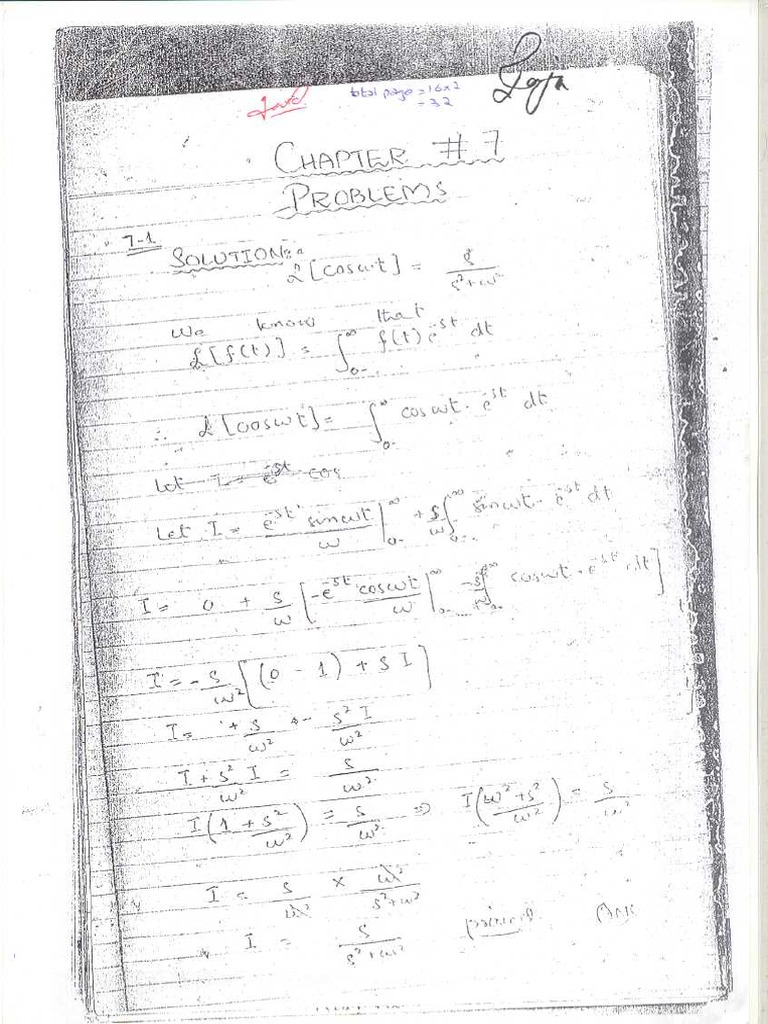 total page = 16 x 2
= 32
CHAPTER # 7
PROBLEMS
7-1
SOLUTION:-
ℒ[cosωt] = s / (s² + ω²)
We know that
ℒ[f(t)] = ∫₀₋^∞ f(t) e^-st dt
∴ ℒ[cosωt] = ∫₀₋^∞ cosωt · e^-st dt
Let I = e^-st cos
Let I = e^-st sinωt / ω |₀₋^∞ + s/ω ∫₀₋^∞ sinωt · e^-st dt
I = 0 + s/ω [ -e^-st cosωt / ω |₀₋^∞ - s/ω ∫₀₋^∞ cosωt · e^-st dt ]
I = - s/ω² [ (0 - 1) + s I ]
I = + s/ω² - s² I / ω²
I + s²/ω² I = s/ω²
I ( 1 + s²/ω² ) = s/ω² => I ( (ω² + s²) / ω² ) = s/ω²
I = s/ω² × ω² / (s² + ω²)
I = s / (s² + ω²) Ans